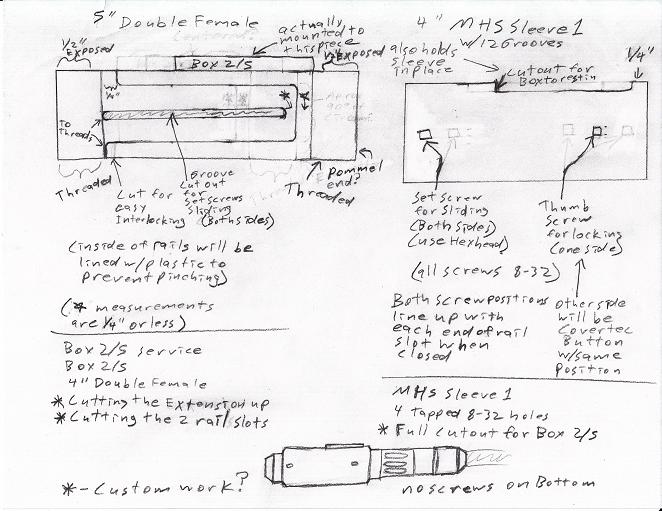 5" Double Female
1/2" Exposed
actually
mounted to
this piece
1/2" Exposed
Box 2/5
1/4"
To
Threads
Threaded
Cut for
easy
Interlocking
Groove
Cut out
for
Setscrews
Sliding
(Both sides)
Threaded
Pommel
end?
(inside of rails will be
lined w/plastic to
prevent pinching)
(* measurements
are 1/4" or less)
Box 2/5 service
Box 2/5
4" Double Female
*Cutting the Extension up
*Cutting the 2 rail slots
*-Custom work?
4" MHS Sleeve 1
w/12 Grooves
also holds
sleeve
in place
Cutout for
Box to rest in
1/4"
Set screw
for sliding
(Both sides)
(use Hexhead)
Thumb
Screw
for locking
(one side)
(all screws 8-32)
Both screw positions
line up with
each end of rail
slot when
closed
Other side
will be
Covertec
Button
w/same
position
MHS Sleeve 1
4 tapped 8-32 holes
* Full Cutout for Box 2/5
no screws on Bottom